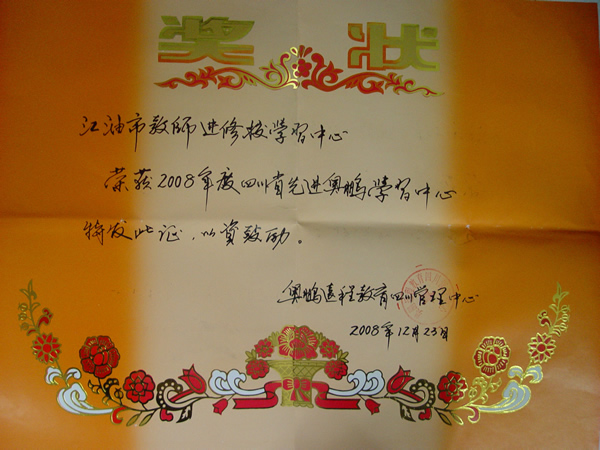 奖状
江油市教师进修校学习中心
荣获2008年度四川省先进奥鹏学习中心
特发此证，以资鼓励。
奥鹏远程教育四川管理中心
2008年12月23日